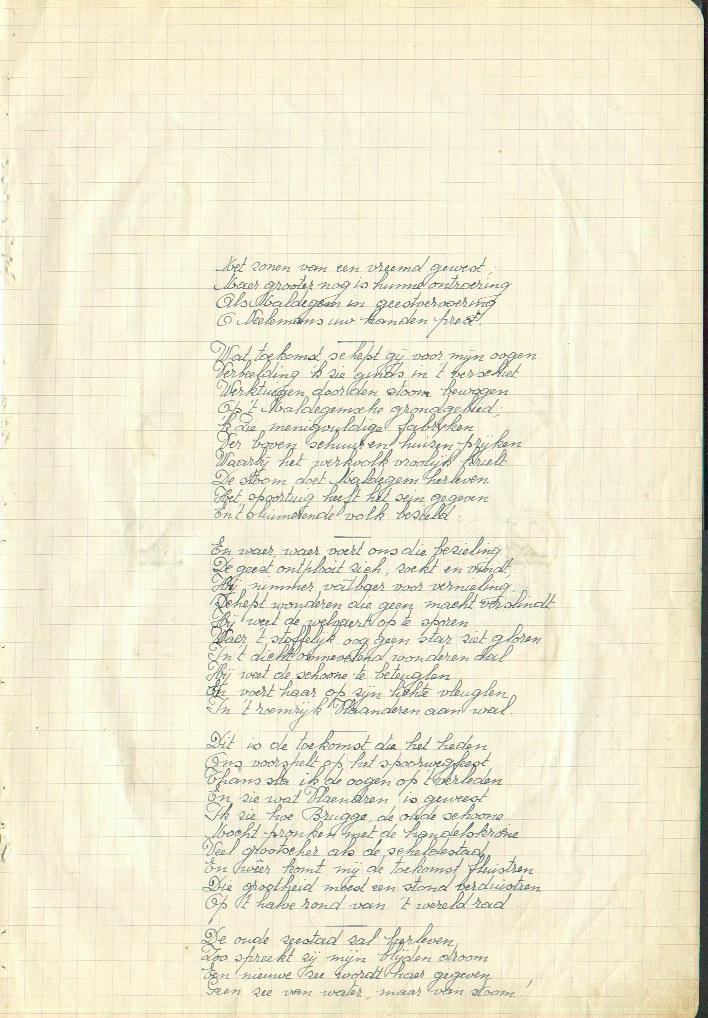 Met zonen van een vreemd gewest;
Maer grooter nog is hunne ontroering
Als Maldegem in geestvervoering
O Neelemans uw handen prest.
Wat toekomst schept gij voor mijn oogen
Verbeelding 'k zie ginds in 't verschiet
Werktuigen door den stoom bewogen
Op 't Maldegemsche grondgebied,
'k zie menigvuldige fabryken
Ver boven schuur en huizen prijken
Waarbij het werkvolk vroolijk krielt
De stoom doet Maldegem herleven
Het spoortuig heeft het sijn gegeven
En 't sluimerende volk bezield.
En waer, waer voert ons die bezieling
De geest ontplooit zich, zoekt en vindt
Hij nimmer vatbaer voor vernieling
Schept wonderen die geen macht verslindt
Hij weet de op te sporen
Waer 't stoffelijk oog geen star ziet gloren
In 't dicht wonderen dal
Hij weet de schoone te beteuglen
En voert haar op zijn lichte vleuglen
In 't roemrijk Vlaanderen aan wal.
Dit is de toekomst die het heden
Ons voorspelt op het spoorwegfeest
Thans sla ik de oogen op 't verleden
En zie wat Vlaendren is geweest
Ik zie hoe Brugge, de oude schoone
Mocht pronken met de handelskrone
Veel grootscher als de scheldestad,
En wêer komt mij de toekomst fluistren
Die grootheid moest een stond verduistren
Op 't halve rond van 't wereldrad
De oude zeestad zal herleven,
Zoo spreekt zij mijn blijden droom
Een nieuwe zee wordt haer gegeven
Geen zee van water, maar van stoom!